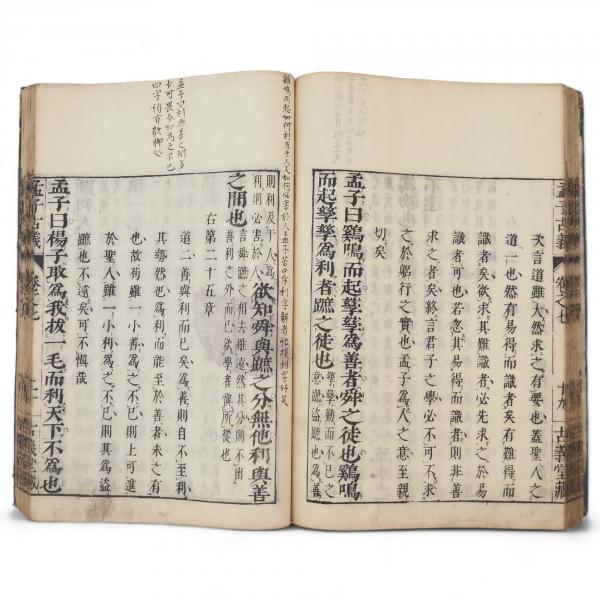 孟子古義 卷之七 十九 古義堂藏
夫言道雖大然求之有要也蓋聖人之
道一也然有易得而識者矣有難得而
識者矣欲求其難識者必先求之於易
識者可也若忽其易得而識則非善
求之者矣終言君子之學必不可不求
之於躬行之實也孟子為人之意至親
切矣
孟子曰鷄鳴而起孳孳為善者舜之徒也鷄鳴
而起孳孳為利者蹠之徒也
孳孳勤而不已之
意蹠盜蹠也
欲知舜與蹠之分無他利與善
則利及于人為
利則必害於人
之間也
言舜蹠之相去雖遠然其分則不出
善利之外而已欲學者慎所從也
右第二十五章
道二善與利而已矣為善則自不至利
其勢然也為利而能至於善者未之有
也故苟雖一小善為之不已則上可進
於聖人雖一小利為之不已則其為盜
蹠也不遠矣可不慎哉
孟子曰楊子取為我拔一毛而利天下不為也
孟子古義 卷之七 古義堂藏
雞鳴而起如何利及于人又如何必害於人
孟子曰利與善之間